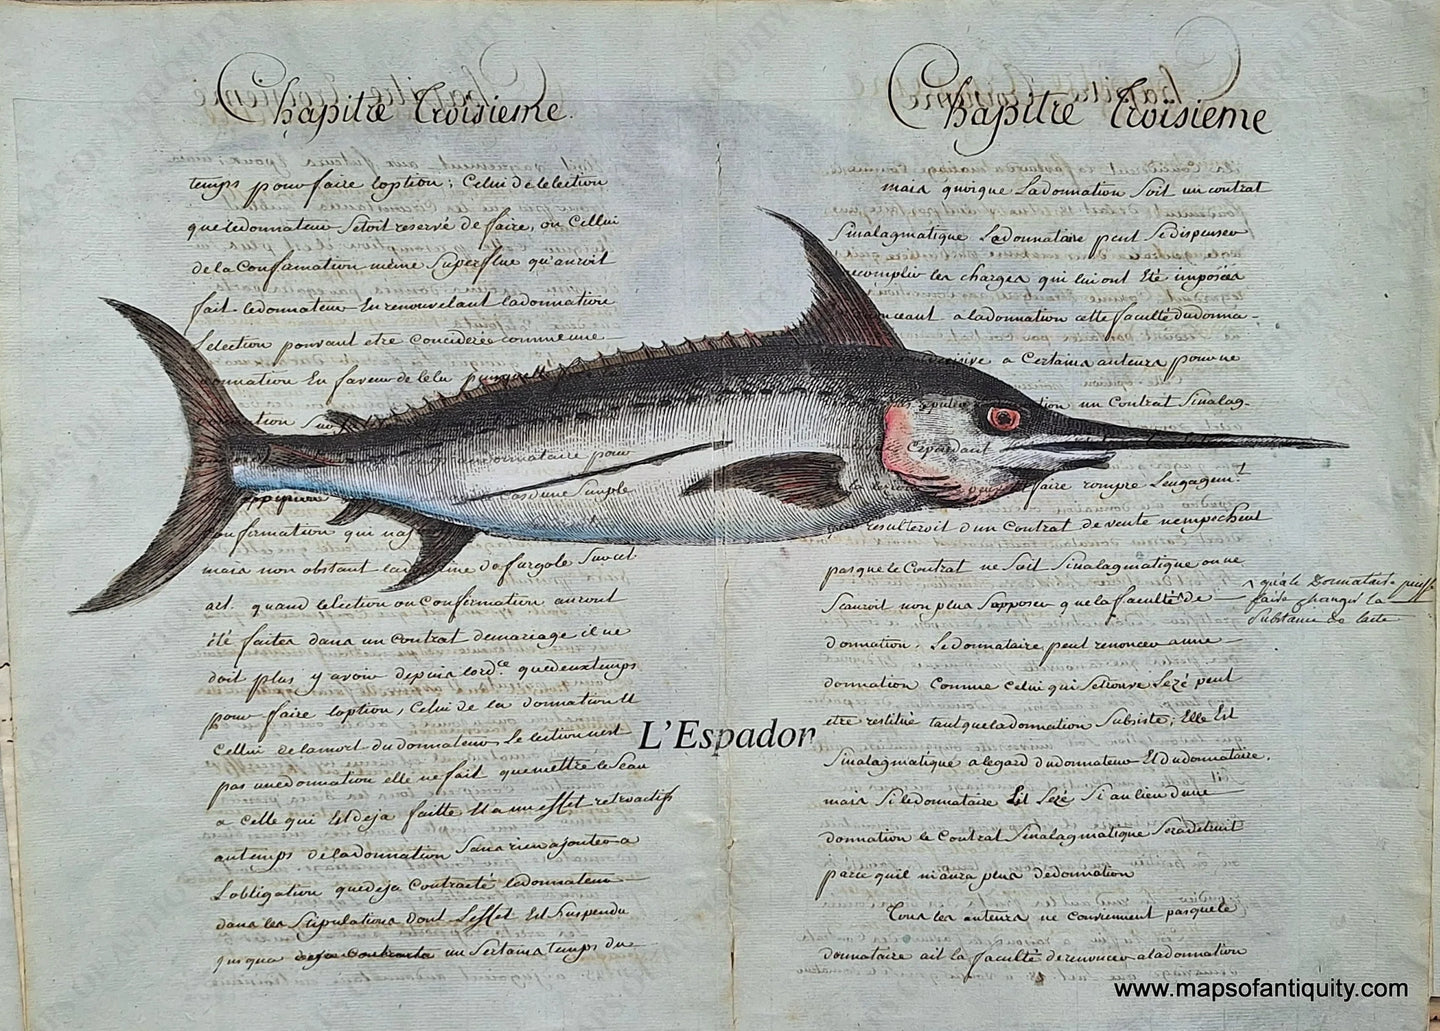 Chapitre Troisieme.
temps pour faire loption; Celui de lelection
que ledonnateur Setoit reservé de faire, ou Cellui
de la Confirmation même Superflue qu'auroit
fait ledonnateur En renouvelant ladonnation
Lelection pouvant etre Concideree comme une
donnation En faveur de lelu
donnataire pour
Cas dune Simple
Confirmation qui nas
mais non obstant la de furgole Sur cet
art. quand lelection ou Confirmation auront
été faites dans un Contrat demariage il ne
doit plus y avoir depuis lord.ce que deux temps
pour faire loption, Celui de la donnation Et
Cellui de lamort du donnateur Le lection nest
pas une donnation elle ne fait que mettre le Seau
a Celle qui Est deja faitte Et a un effet retroactif
autemps de ladonnation Sans rien ajouter a
Lobligation que deja Contracté ledonnateur
dans les Stipulations dont Leffet Est Suspendu
jusques un Certains temps du
L'Espadon
Chapitre Troisieme
mais quoique Ladonnation Soit un contrat
Sinalagmatique Ledonnataire peut Se dispenser
accomplir les charges qui lui ont Eté imposées
a ladonnation cette faculté du donna-
a Certains auteurs pour ne
un Contrat Sinalag-
Cependant
faire rompre Lengagemt.
resulteroit d'un Contrat de vente nempechent
pas que le Contrat ne Soit Sinalagmatique on ne
Scauroit non plus Supposer que la faculté de
^ qu'a le Donnataire puisse
faire changer la
Substance de lacte
donnation. Le donnataire peut renoncer a une
donnation Comme Celui qui Setrouve Lezé peut
etre restitué tant que ladonnation Subsiste; Elle Est
Sinalagmatique a legard du donnateur Et du donnataire.
mais Si le donnataire Est Lezé Si au lieu dune
donnation le Contrat Sinalagmatique Sera detruit
parce quil n'aura plus de donnation
Tous les auteurs ne Conviennent pas que le
donnataire ait la faculté de renoncer a ladonnation
www.mapsofantiquity.com